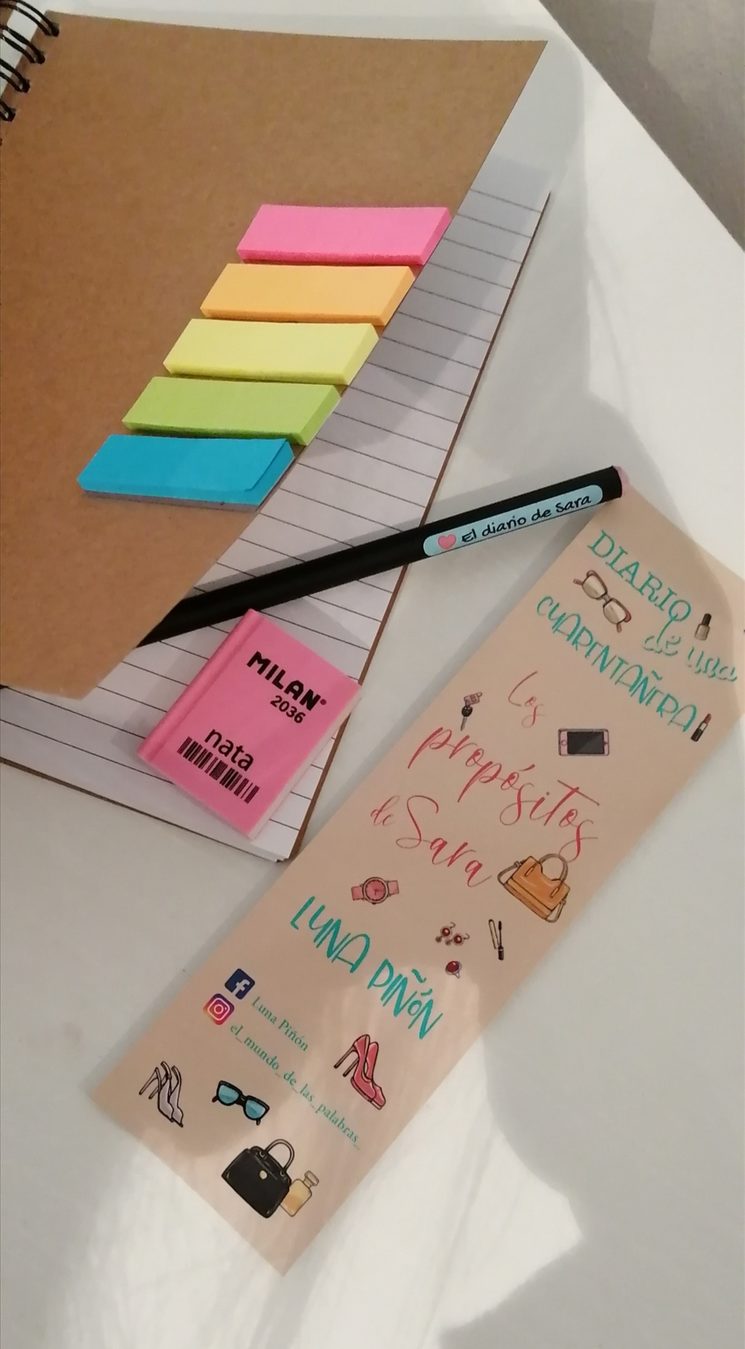 El diario de Sara
MILAN®
2036
nata
DIARIO
de una
CUARENTAÑERA
Los
propósitos
de Sara
LUNA PIÑÓN
Luna Piñón
el_mundo_de_las_palabras_